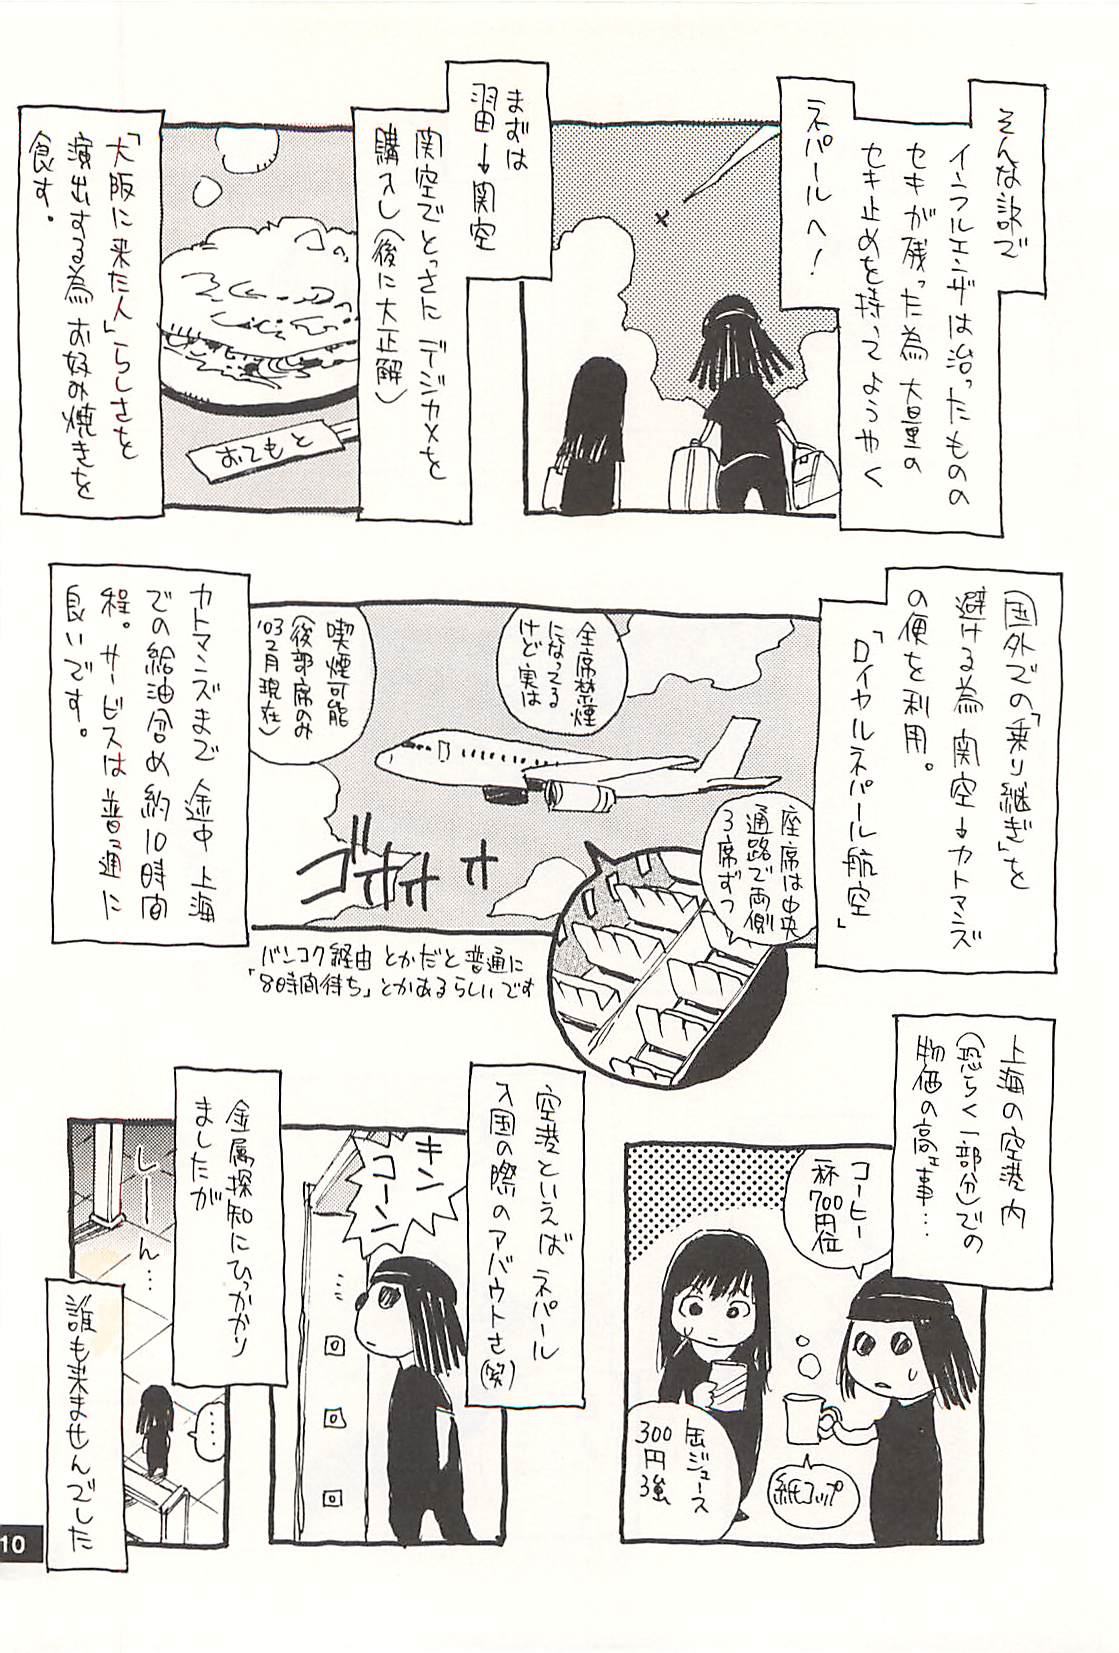 そんな訳で
インフルエンザは治ったものの
セキが残った為 大量の
セキ止めを持ってようやく
ネパールへ!
まずは
羽田→関空
関空でとっさに デジカメを
購入し(後に大正解)
「大阪に来た人」らしさを
演出する為 お好み焼きを
食す。
おてもと
国外での「乗り継ぎ」を
避ける為 関空→カトマンズ
の便を利用。
「ロイヤルネパール航空」
全席禁煙
になってる
けど 実は
喫煙可能
(後部席のみ
'03 2月現在)
座席は中央
通路で両側
3席ずつ
ゴオオオ オ
カトマンズまで 途中 上海
での給油含め 約10時間
程。サービスは普通に
良いです。
バンコク経由 とかだと 普通に
「8時間待ち」とかあるらしいです
上海の空港内
(恐らく一部分)での
物価の高エ事…
コーヒー
一杯
700円位
紙コップ
缶ジュース
300
円
強
空港といえば ネパール
入国の際のアバウトさ(笑)
キン
コーン
金属探知にひっかかり
ましたが
しーーん…
…
誰も来ませんでした
10